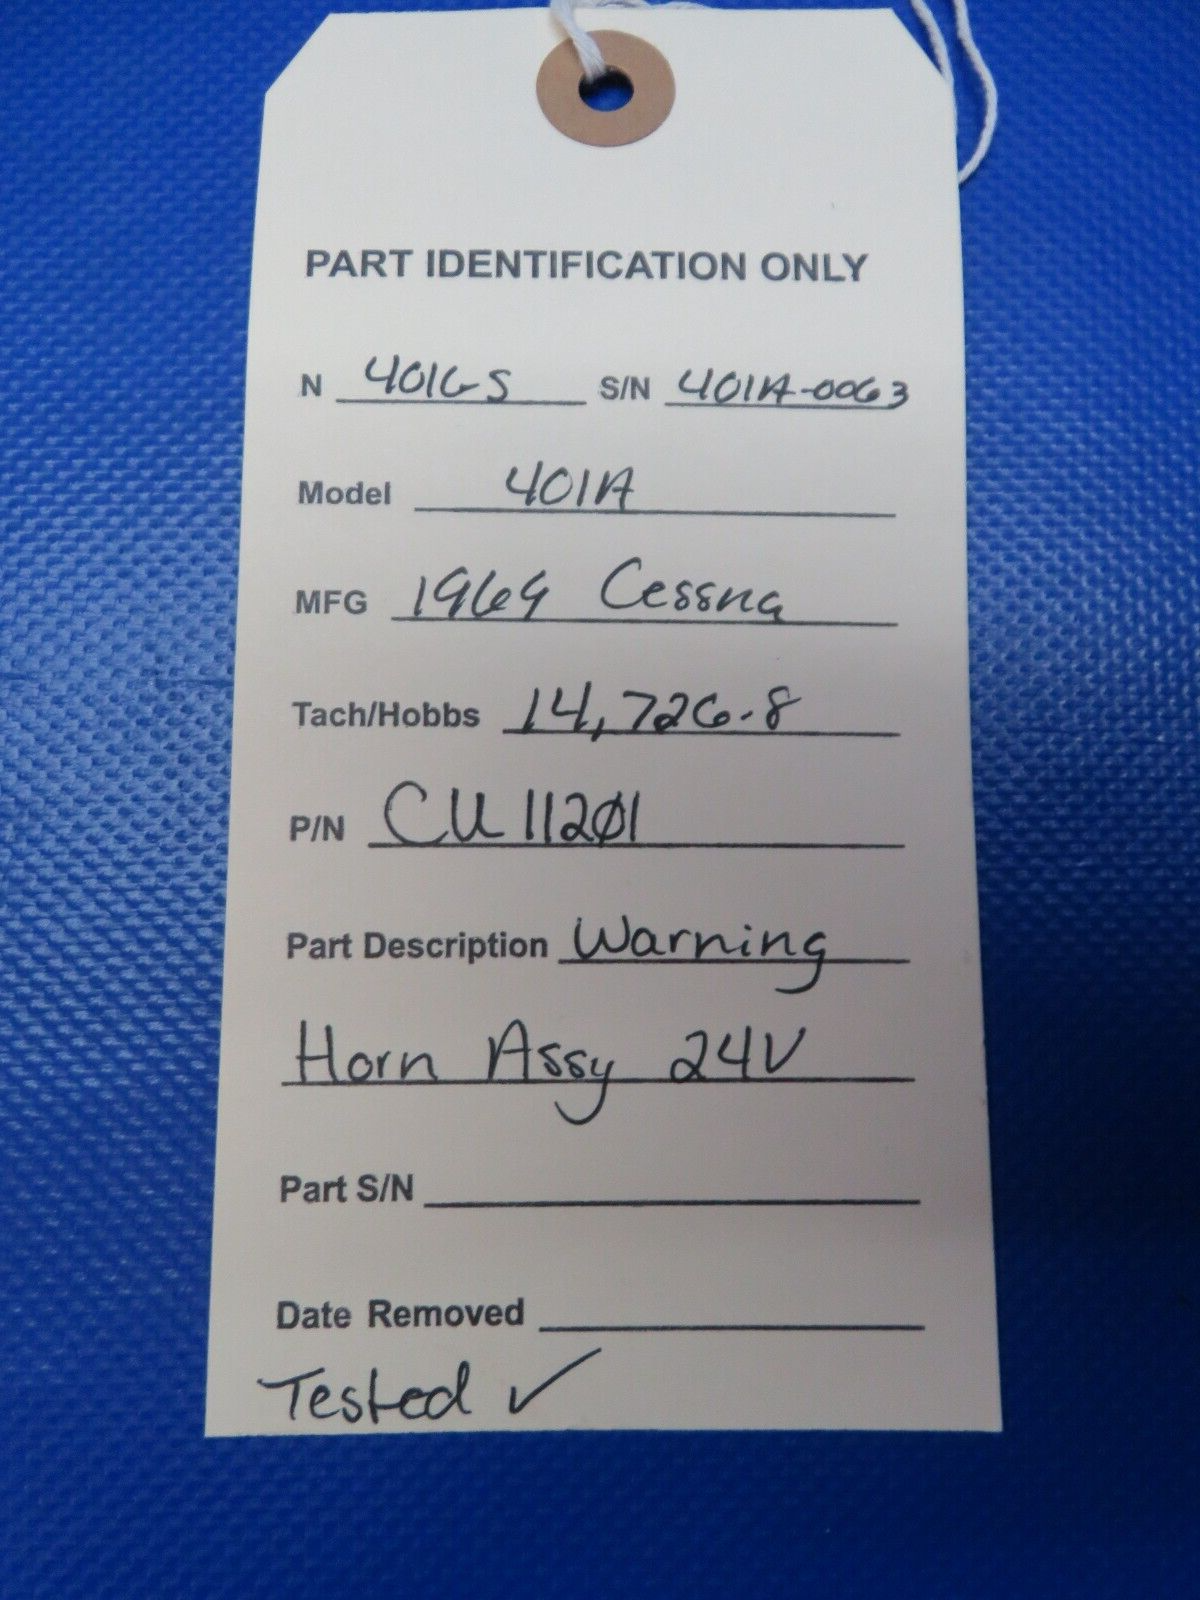 PART IDENTIFICATION ONLY
N 401GS S/N 401A-0063
Model 401A
MFG 1969 Cessna
Tach/Hobbs 14,726.8
P/N CU112Ø1
Part Description Warning
Horn Assy 24V
Part S/N
Date Removed
Tested ✓